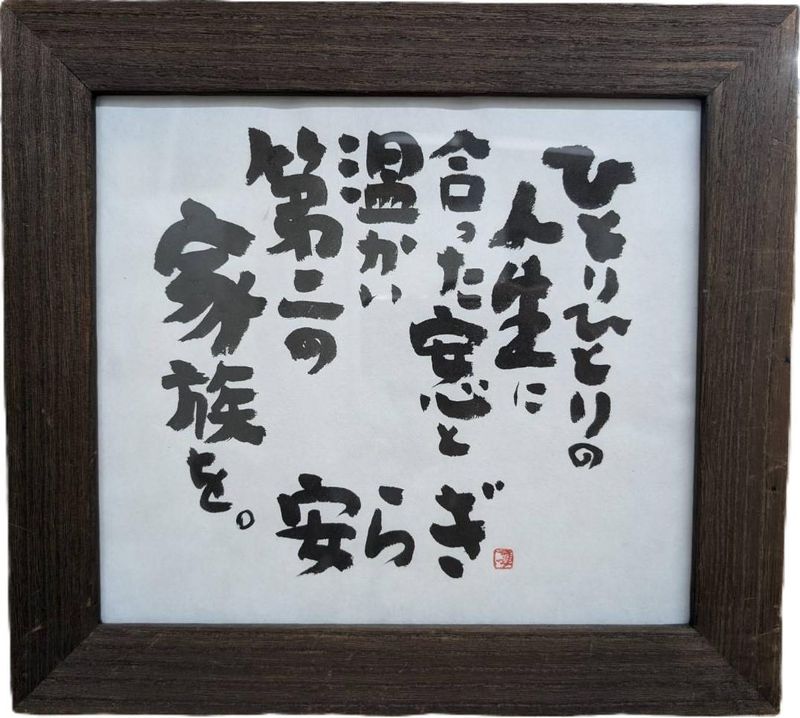 ひとりひとりの
人生に
合った安心と
温かい
第二の
家族を。
安らぎ